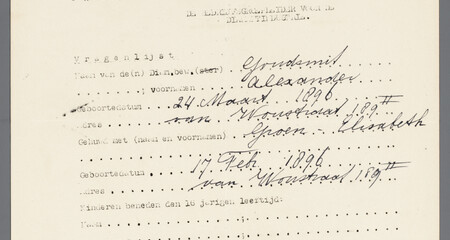 V r a g e n l i j s t
Naam van de(n) Dien.bew.(ster) Goudsmit
; voornamen Alexander
Geboortedatum 24 Maart 1896
Adres van Woustraat 189 II
Gehuwd met (naam en voornamen) Groen - Elisabeth
Geboortedatum 17 Feb 1896
Adres van Woustraat 189 II
Kinderen beneden den 16 jarigen leertijd:
Naam